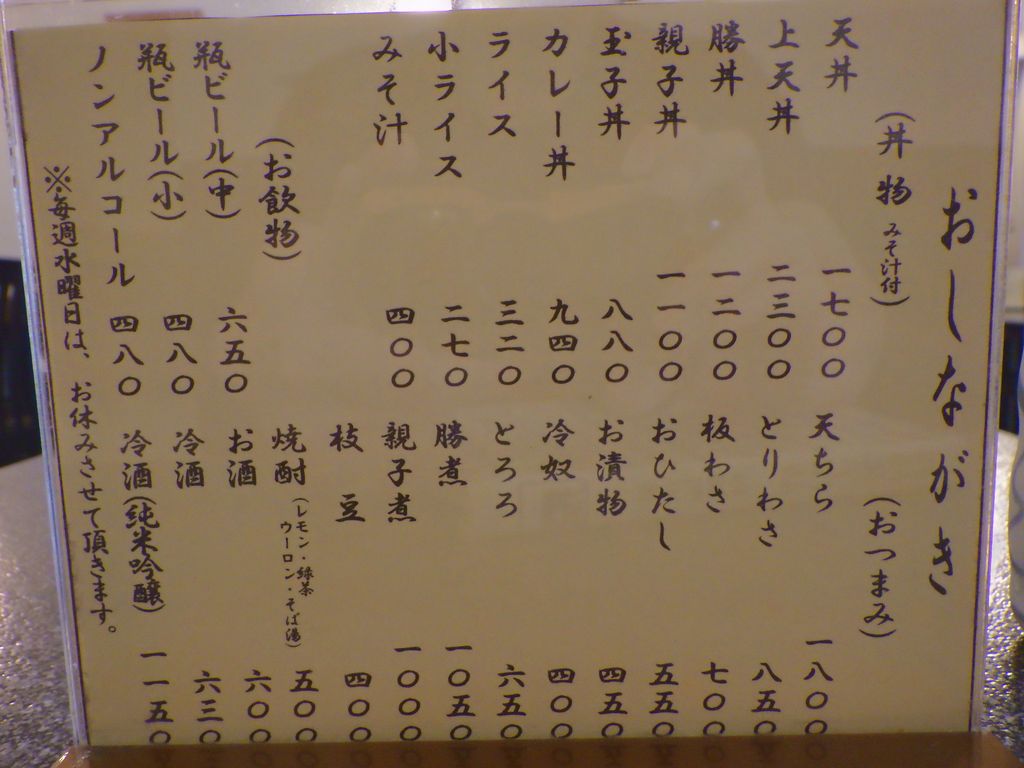 おしながき
(丼物 みそ汁付)
天丼 一七〇〇
上天丼 二三〇〇
勝丼 一二〇〇
親子丼 一一〇〇
玉子丼 八八〇
カレー丼 九四〇
ライス 三二〇
小ライス 二七〇
みそ汁 四〇〇
(お飲物)
瓶ビール(中) 六五〇
瓶ビール(小) 四八〇
ノンアルコール 四八〇
(おつまみ)
天ちら 一八〇〇
とりわさ 八五〇
板わさ 七〇〇
おひたし 五五〇
お漬物 四五〇
冷奴 四〇〇
とろろ 六五〇
勝煮 一〇五〇
親子煮 一〇〇〇
枝豆 四〇〇
焼酎 (レモン・緑茶 ウーロン・そば湯) 五〇〇
お酒 六〇〇
冷酒 六三〇
冷酒(純米吟醸) 一一五〇
※毎週水曜日は、お休みさせて頂きます。